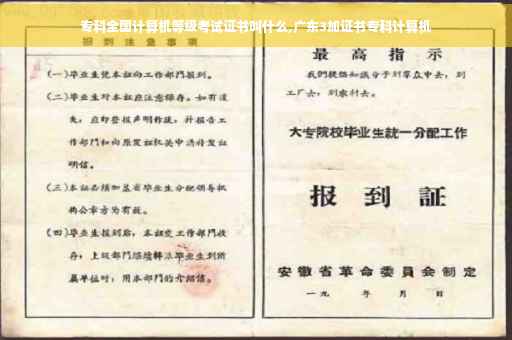 专科全国计算机等级考试证书叫什么,广东3加证书专科计算机
报到注意事项
(一)毕业生凭本证向工作部门报到。
(二)毕业生对本证应注意保存。如有遗
失,应即登报声明作废,并报告工
作部门和向原发证机关申请补发证
明信。
(三)本证必须加盖省毕业生分配领导机
构公章方为有效。
(四)毕业生报到后,本证交工作部门收
存;上级部门继续转派毕业生到所
属单位时,用本部门的介绍信。
最高指示
我们提倡知识分子到群众中去,到
工厂去,到农村去。
大专院校毕业生統一分配工作
报到証
安徽省革命委員会制定
一九 年 月 日